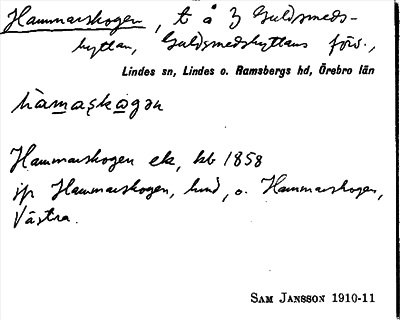 Hammarskogen, t å 3 Guldsmeds-
hyttan, Guldsmedshyttans förs.,
Lindes sn, Lindes o. Ramsbergs hd, Örebro län
hàmaskògən
Hammarskogen ek, kb 1858
jfr Hammarskogen, lund, o. Hammarskogen,
Västra.
SAM JANSSON 1910-11